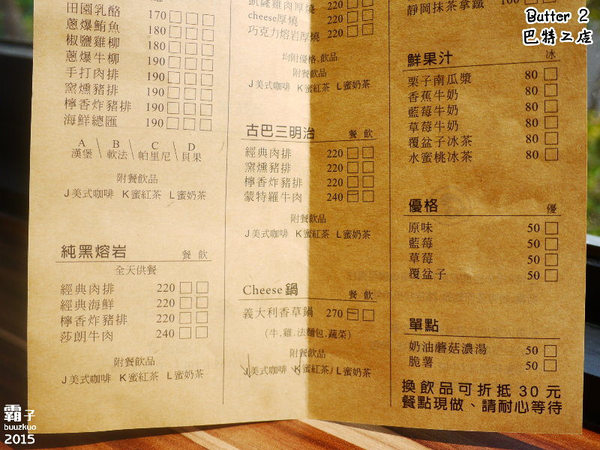 田園乳酪 170
蔥爆鮪魚 180
椒鹽雞柳 180
蔥爆牛柳 190
手打肉排 190
窯燻豬排 190
檸香炸豬排 190
海鮮總匯 190
A B C D
漢堡 軟法 帕里尼 貝果
附餐飲品
J美式咖啡 K蜜紅茶 L蜜奶茶
純黑熔岩 餐 飲
全天供餐
經典肉排 220
經典海鮮 220
檸香炸豬排 220
莎朗牛肉 240
附餐飲品
J美式咖啡 K蜜紅茶 L蜜奶茶
cheese厚燒 210
巧克力熔岩厚燒 190
均附優格.飲品
附餐飲品
J美式咖啡 K蜜紅茶 L蜜奶茶
古巴三明治 餐 飲
經典肉排 220
窯燻豬排 220
檸香炸豬排 220
蒙特羅牛肉 240
附餐飲品
J美式咖啡 K蜜紅茶 L蜜奶茶
Cheese鍋 餐 飲
義大利香草鍋 270
(牛.雞.法麵包.蔬菜)
附餐飲品
J美式咖啡 K蜜紅茶 L蜜奶茶
靜岡抹茶拿鐵
鮮果汁 冰
栗子南瓜漿 80
香蕉牛奶 80
藍莓牛奶 80
草莓牛奶 80
覆盆子冰茶 80
水蜜桃冰茶 80
優格 優
原味 50
藍莓 50
草莓 50
覆盆子 50
單點
奶油蘑菇濃湯 50
脆薯 50
換飲品可折抵30元
餐點現做、請耐心等待
Butter 2
巴特工店
霸子
buuzkuo
2015